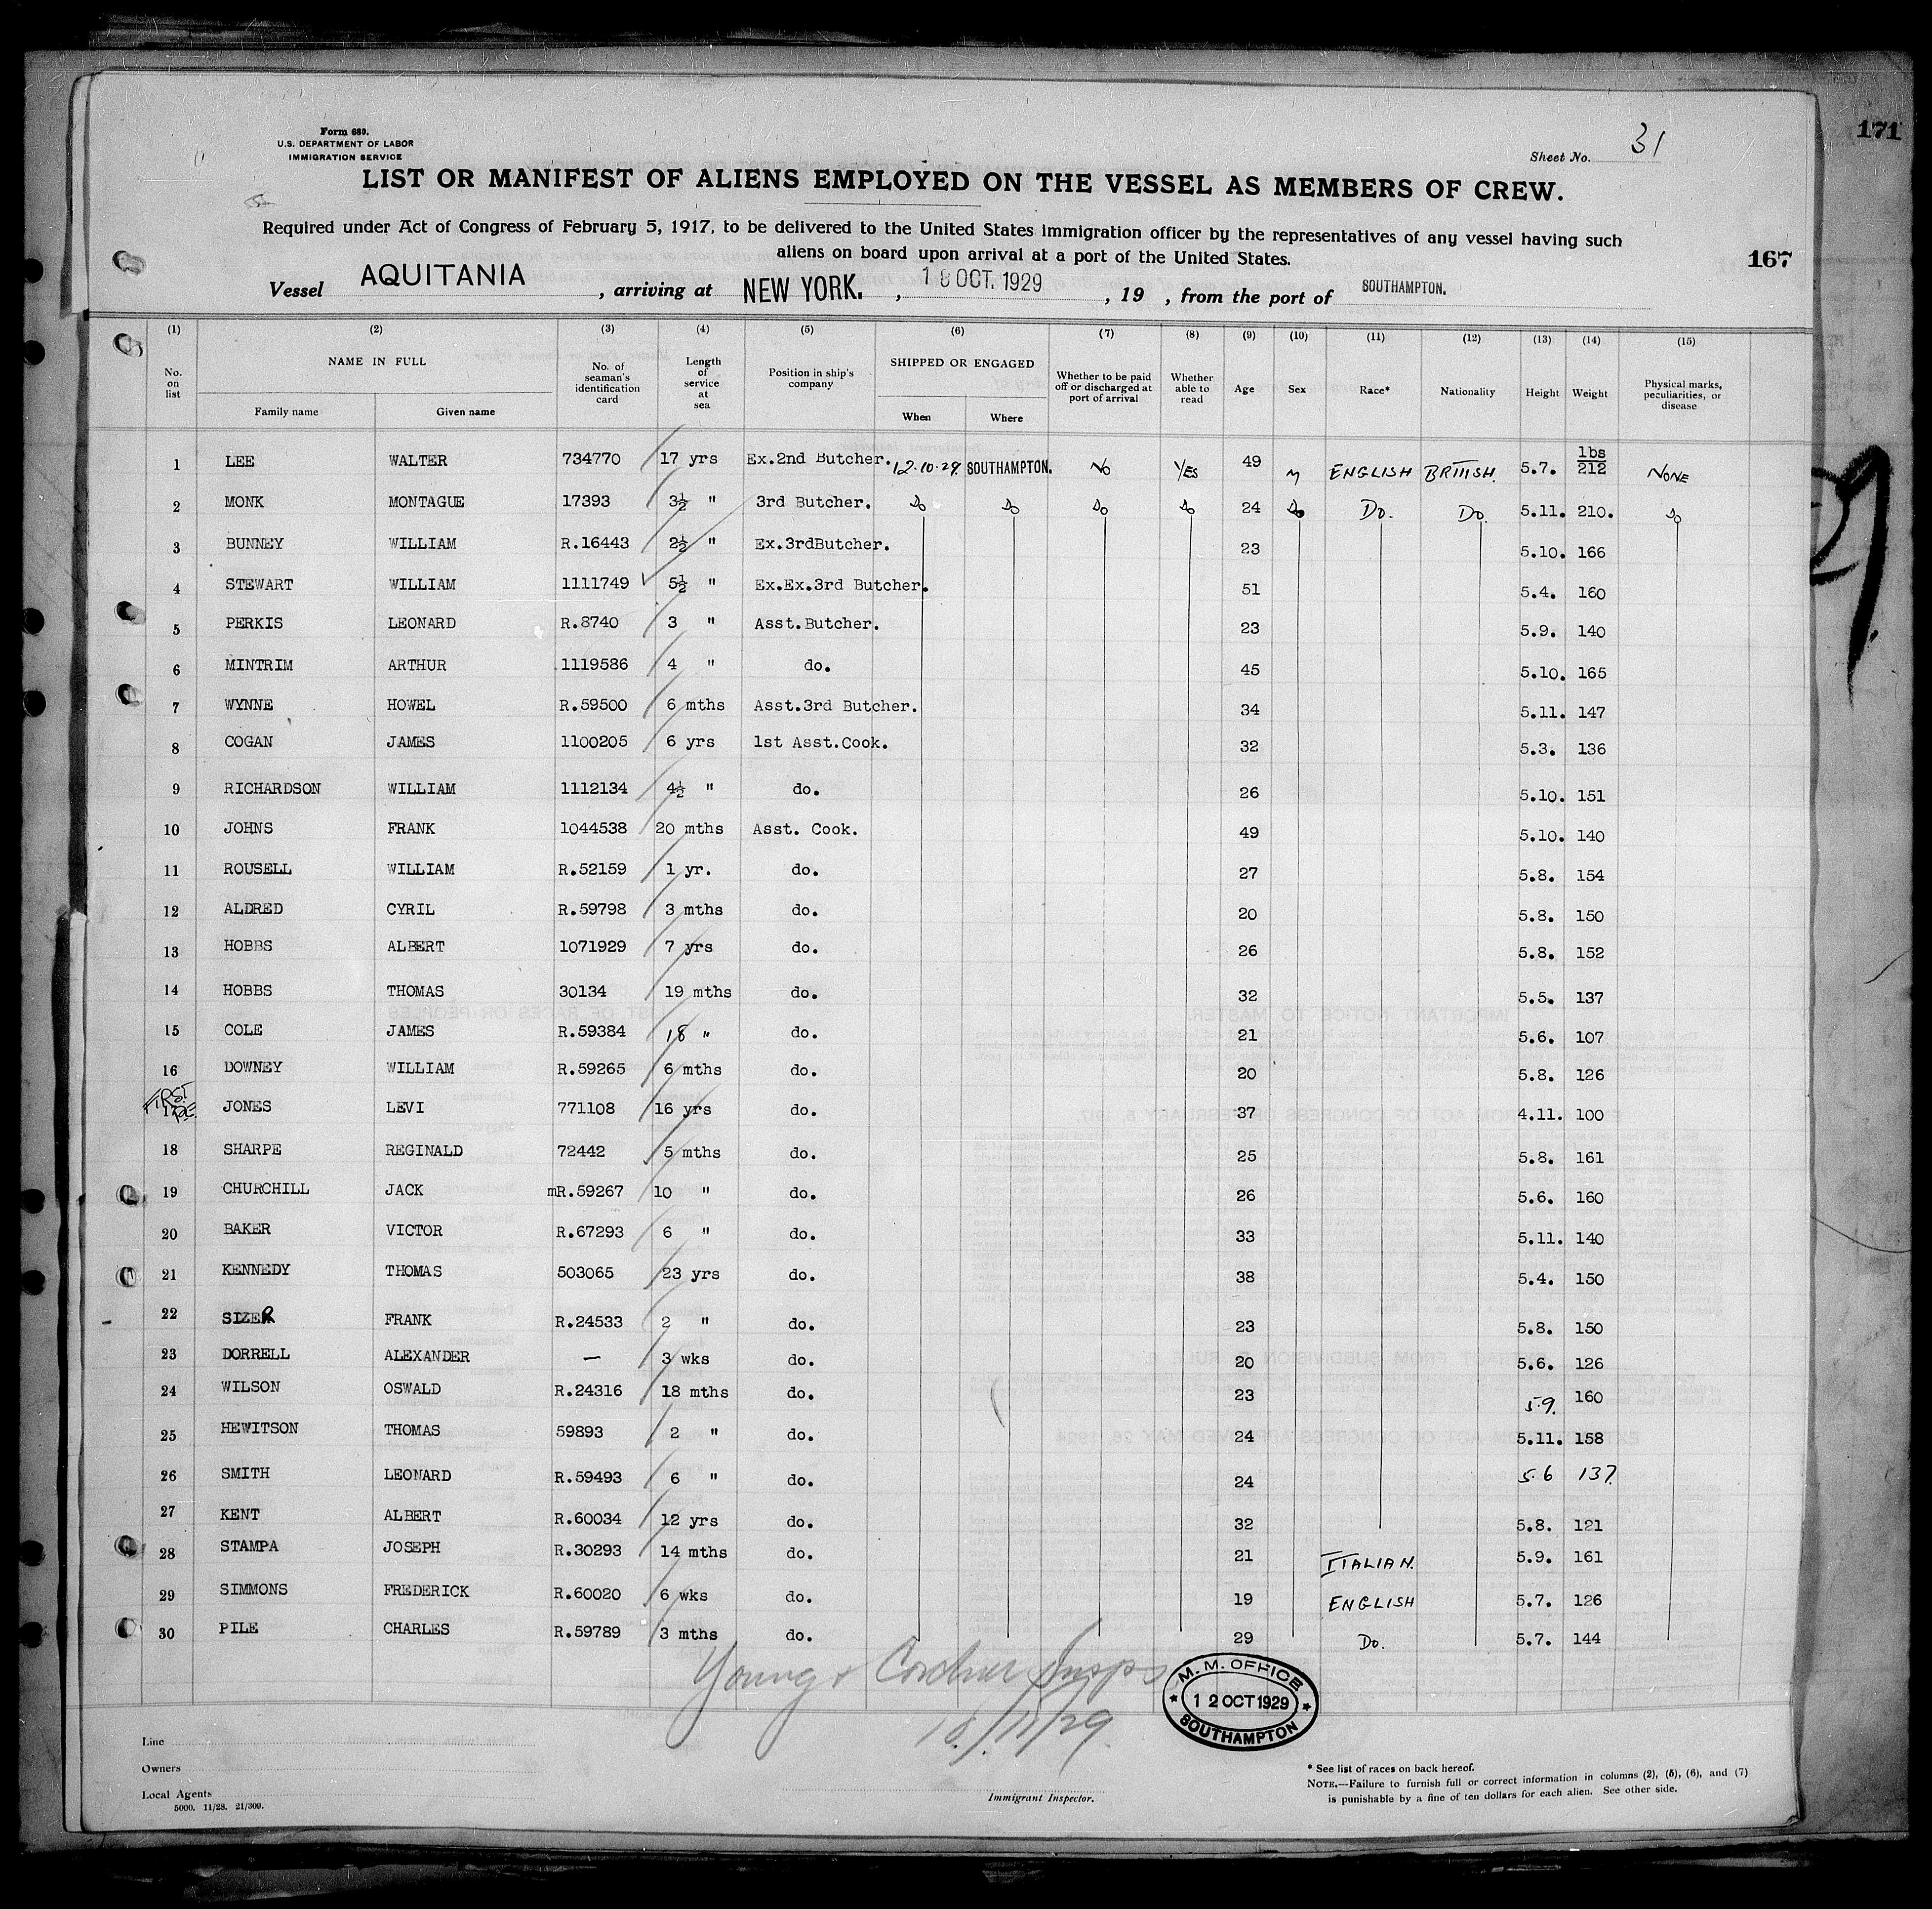 171
Form 680.
U.S. DEPARTMENT OF LABOR
IMMIGRATION SERVICE
Sheet No. 31
LIST OR MANIFEST OF ALIENS EMPLOYED ON THE VESSEL AS MEMBERS OF CREW.
Required under Act of Congress of February 5, 1917, to be delivered to the United States immigration officer by the representatives of any vessel having such
aliens on board upon arrival at a port of the United States.
167
Vessel AQUITANIA, arriving at NEW YORK., 18 OCT. 1929, 19 , from the port of SOUTHAMPTON.
(1) (2) (3) (4) (5) (6) (7) (8) (9) (10) (11) (12) (13) (14) (15)
No. on list NAME IN FULL Family name Given name No. of seaman's identification card Length of service at sea Position in ship's company SHIPPED OR ENGAGED When Where Whether to be paid off or discharged at port of arrival Whether able to read Age Sex Race* Nationality Height Weight Physical marks, peculiarities, or disease
1 LEE WALTER 734770 17 yrs Ex.2nd Butcher. 12.10.29. SOUTHAMPTON. NO YES 49 M ENGLISH BRITISH. 5.7. lbs 212 NONE
2 MONK MONTAGUE 17393 3½ " 3rd Butcher. Do Do Do Do 24 Do Do. Do. 5.11. 210. Do
3 BUNNEY WILLIAM R.16443 2½ " Ex.3rdButcher. 23 5.10. 166
4 STEWART WILLIAM 1111749 5½ " Ex.Ex.3rd Butcher. 51 5.4. 160
5 PERKIS LEONARD R.8740 3 " Asst.Butcher. 23 5.9. 140
6 MINTRIM ARTHUR 1119586 4 " do. 45 5.10. 165
7 WYNNE HOWEL R.59500 6 mths Asst.3rd Butcher. 34 5.11. 147
8 COGAN JAMES 1100205 6 yrs 1st Asst.Cook. 32 5.3. 136
9 RICHARDSON WILLIAM 1112134 4½ " do. 26 5.10. 151
10 JOHNS FRANK 1044538 20 mths Asst. Cook. 49 5.10. 140
11 ROUSELL WILLIAM R.52159 1 yr. do. 27 5.8. 154
12 ALDRED CYRIL R.59798 3 mths do. 20 5.8. 150
13 HOBBS ALBERT 1071929 7 yrs do. 26 5.8. 152
14 HOBBS THOMAS 30134 19 mths do. 32 5.5. 137
15 COLE JAMES R.59384 18 " do. 21 5.6. 107
16 DOWNEY WILLIAM R.59265 6 mths do. 20 5.8. 126
FIRST
17 JONES LEVI 771108 16 yrs do. 37 4.11. 100
18 SHARPE REGINALD 72442 5 mths do. 25 5.8. 161
19 CHURCHILL JACK mR.59267 10 " do. 26 5.6. 160
20 BAKER VICTOR R.67293 6 " do. 33 5.11. 140
21 KENNEDY THOMAS 503065 23 yrs do. 38 5.4. 150
22 SIZER FRANK R.24533 2 " do. 23 5.8. 150
23 DORRELL ALEXANDER — 3 wks do. 20 5.6. 126
24 WILSON OSWALD R.24316 18 mths do. 23 5.9. 160
25 HEWITSON THOMAS 59893 2 " do. 24 5.11. 158
26 SMITH LEONARD R.59493 6 " do. 24 5.6 137.
27 KENT ALBERT R.60034 12 yrs do. 32 5.8. 121
28 STAMPA JOSEPH R.30293 14 mths do. 21 ITALIAN. 5.9. 161
29 SIMMONS FREDERICK R.60020 6 wks do. 19 ENGLISH 5.7. 126
30 PILE CHARLES R.59789 3 mths do. 29 Do. 5.7. 144
Young & Cordner Insps
M. M. OFFICE
12 OCT 1929
SOUTHAMPTON
Line
Owners
Local Agents
5000. 11/28. 21/309.
Immigrant Inspector.
* See list of races on back hereof.
NOTE.—Failure to furnish full or correct information in columns (2), (5), (6), and (7)
is punishable by a fine of ten dollars for each alien. See other side.